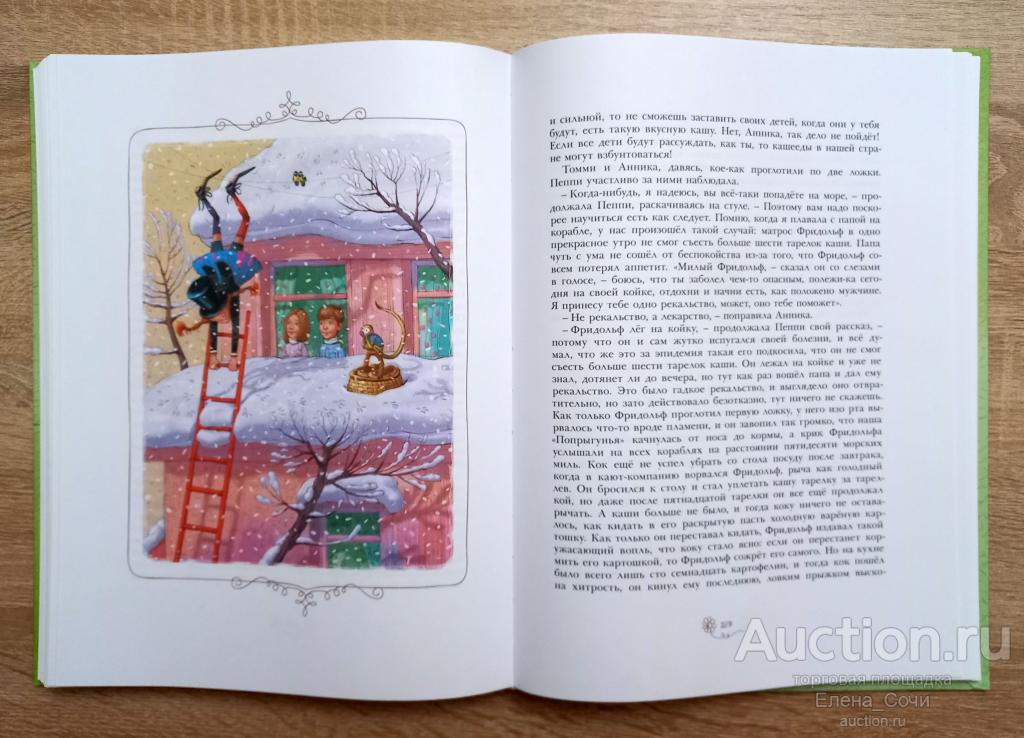 и сильной, то не сможешь заставить своих детей, когда они у тебя
будут, есть такую вкусную кашу. Нет, Анника, так дело не пойдёт!
Если все дети будут рассуждать, как ты, то кашееды в нашей стра-
не могут взбунтоваться!
Томми и Анника, давясь, кое-как проглотили по две ложки.
Пеппи участливо за ними наблюдала.
– Когда-нибудь, я надеюсь, вы всё-таки попадёте на море, – про-
должала Пеппи, раскачиваясь на стуле. – Поэтому вам надо поско-
рее научиться есть как следует. Помню, когда я плавала с папой на
корабле, у нас произошёл такой случай: матрос Фридольф в одно
прекрасное утро не смог съесть больше шести тарелок каши. Папа
чуть с ума не сошёл от беспокойства из-за того, что Фридольф со-
всем потерял аппетит. «Милый Фридольф, – сказал он со слезами
в голосе, – боюсь, что ты заболел чем-то опасным, полежи-ка сего-
дня на своей койке, отдохни и начни есть, как положено мужчине.
Я принесу тебе одно рекальство, может, оно тебе поможет».
– Не рекальство, а лекарство, – поправила Анника.
– Фридольф лёг на койку, – продолжала Пеппи свой рассказ, –
потому что он и сам жутко испугался своей болезни, и всё ду-
мал, что же это за эпидемия такая его подкосила, что он не смог
съесть больше шести тарелок каши. Он лежал на койке и уже не
знал, дотянет ли до вечера, но тут как раз вошёл папа и дал ему
рекальство. Это было гадкое рекальство, и выглядело оно отвра-
тительно, но зато действовало безотказно, тут ничего не скажешь.
Как только Фридольф проглотил первую ложку, у него изо рта вы-
рвалось что-то вроде пламени, и он завопил так громко, что наша
«Попрыгунья» качнулась от носа до кормы, а крик Фридольфа
услышали на всех кораблях на расстоянии пятидесяти морских
миль. Кок ещё не успел убрать со стола посуду после завтрака,
когда в кают-компанию ворвался Фридольф, рыча как голодный
лев. Он бросился к столу и стал уплетать кашу тарелку за тарел-
кой, но даже после пятнадцатой тарелки он все ещё продолжал
рычать. А каши больше не было, и тогда коку ничего не остава-
лось, как кидать в его раскрытую пасть холодную варёную кар-
тошку. Как только он переставал кидать, Фридольф издавал такой
ужасающий вопль, что коку стало ясно: если он перестанет кор-
мить его картошкой, то Фридольф сожрёт его самого. Но на кухне
было всего лишь сто семнадцать картофелин, и тогда кок пошёл
на хитрость, он кинул ему последнюю, ловким прыжком выско-
Auction.ru
торговая площадка
Елена_Сочи
auction.ru